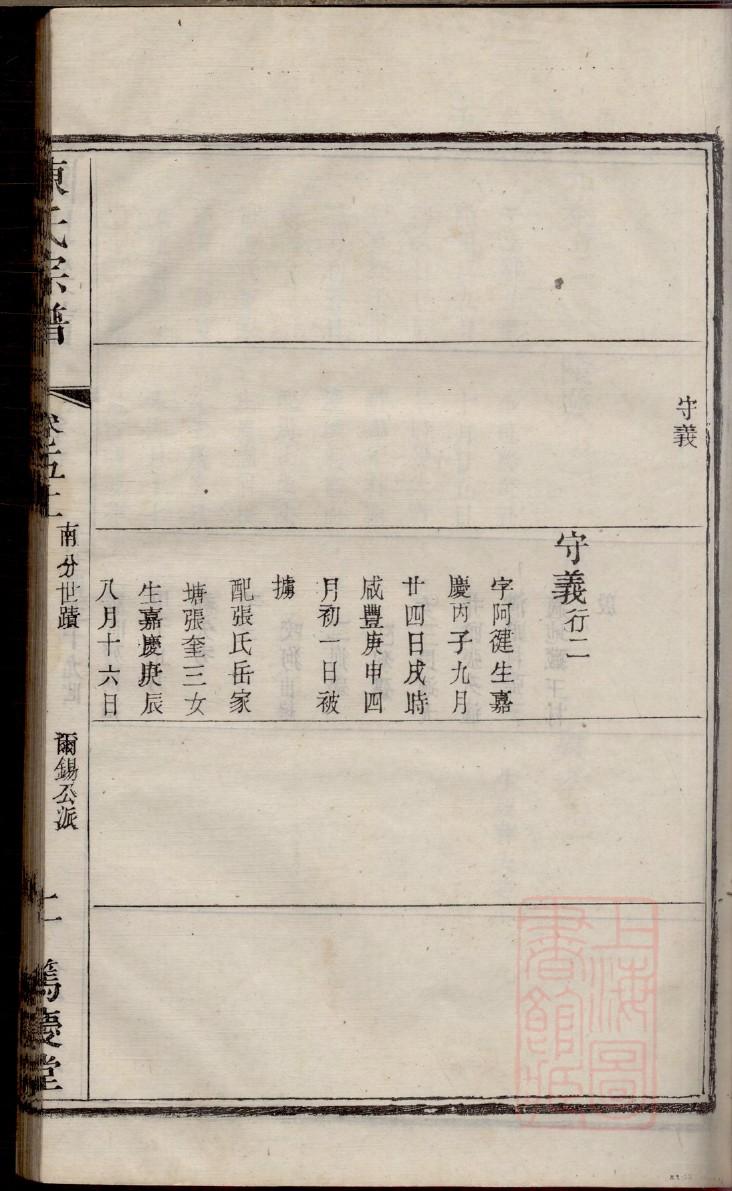 守義
守義行二
字阿健生嘉
慶丙子九月
廿四日戌時
咸豐庚申四
月初一日被
擄
配張氏岳家
塘張奎三女
生嘉慶庚辰
八月十六日
陳氏宗譜
卷五上
南分世蹟
爾錫公派
篤慶堂
上海圖書館藏